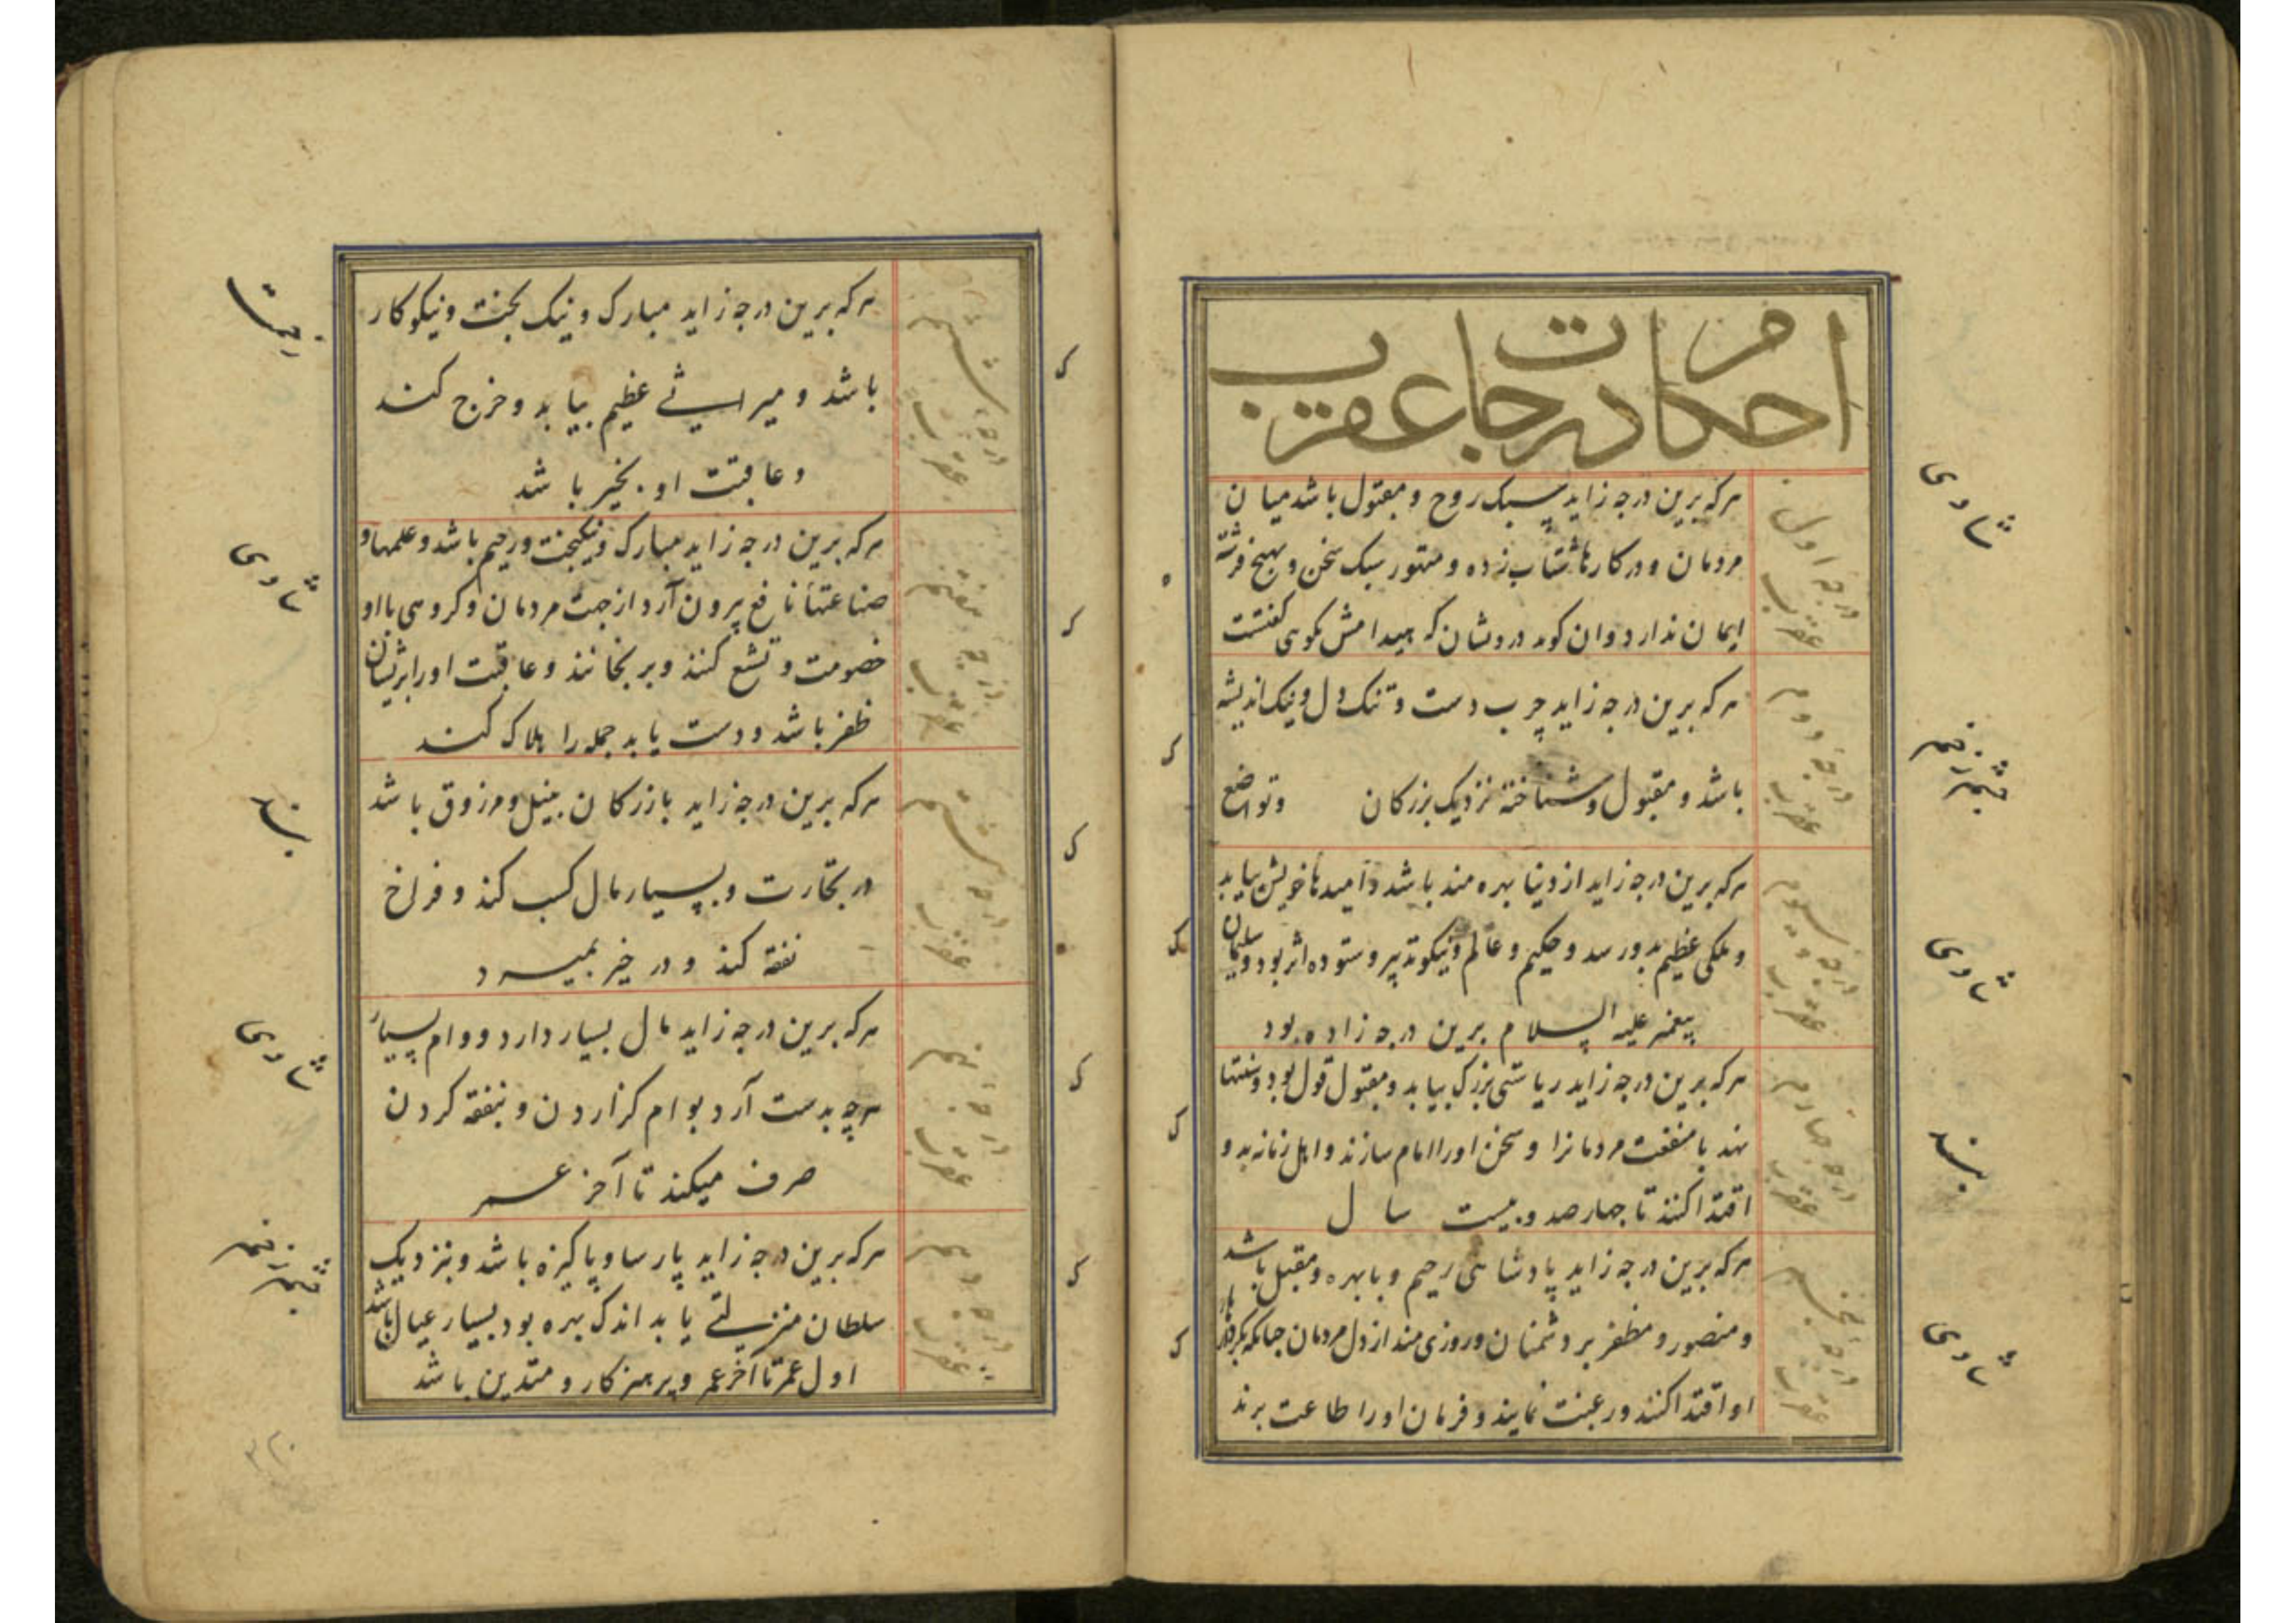 احکام درجات عقرب
درجه اول عقرب
هر که برین درجه زاید سبک روح و مقبول باشد میان
مردمان و در کارها شتاب زده و متهور سبک سخن و بهیچ فرشته
ایمان ندارد وان
درجه دوم عقرب
هر که برین درجه زاید چرب دست و تنک دل و نیک اندیشه
باشد و مقبول و شناخته نزدیک بزرکان و تواضع
درجه سیوم عقرب
هر که برین درجه زاید از دنیا بهره مند باشد و امیدها خویش بیابد
و ملکی عظیم بدو رسد و حکیم و عالم و نیکو تدبیر و ستوده اثر بود و سلیمان
پیغمبر علیه السلام برین درجه زاده بود
درجه چهارم عقرب
هر که برین درجه زاید ریاستی بزرک بیابد و مقبول قول بود و سنتها
نهد با منفعت مردمانرا و سخن اورا امام سازند و اهل زمانه بدو
اقتدا کنند تا چهار صد و بیست سال
درجه پنجم عقرب
هر که برین درجه زاید پادشاهی رحیم و با بهره و مقبل باشد
و منصور و مظفر بر دشمنان و روزی مند از دل مردمان چنانکه بکردار
او اقتدا کنند و رغبت نمایند و فرمان اورا طاعت برند
درجه ششم عقرب
هر که برین درجه زاید مبارک و نیک بخت و نیکو کار
باشد و میراثی عظیم بیابد و خرج کند
و عاقبت او بخیر باشد
درجه هفتم عقرب
هر که برین درجه زاید مبارک و نیکبخت و رحیم باشد و علمها و
صناعتها نافع بیرون آرد از جهت مردمان و کروهی با او
خصومت و تشنع کنند و برنجانند و عاقبت اورا بر ایشان
ظفر باشد و دست یابد جمله را هلاک کند
درجه هشتم عقرب
هر که برین درجه زاید بازرکان بنیل و مرزوق باشد
در تجارت و بسیار مال کسب کند و فراخ
نفقه کند و در خیر بمیرد
درجه نهم عقرب
هر که برین درجه زاید مال بسیار دارد و وام بسیار
هرچه بدست آرد بوام کزاردن و بنفقه کردن
صرف میکند تا آخر عمر
درجه دهم عقرب
هر که برین درجه زاید پارسا و پاکیزه باشد و بنزدیک
سلطان منزلتی یابد اندک بهره بود بسیار عیال باشد
اول عمر تا آخر عمر و پرهیزکار و متدین باشد